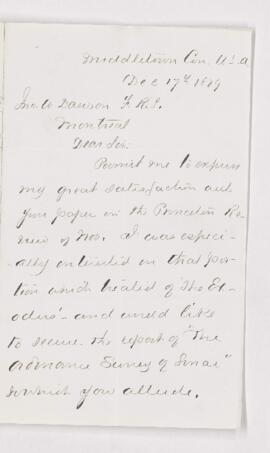 Middletown Con. U.S.A
Dec 17th 1879
J. W. Dawson F.R.S.
Montreal
Dear Sir
Permit me to express
my great satisfaction with
your paper in the Princeton Re-
view of Nov. I was especi-
ally interested in that por-
tion which treated of "The Ex-
odus" - and would like
to secure the report of "The
Ordnance Survey of Sinai"
to which you allude.